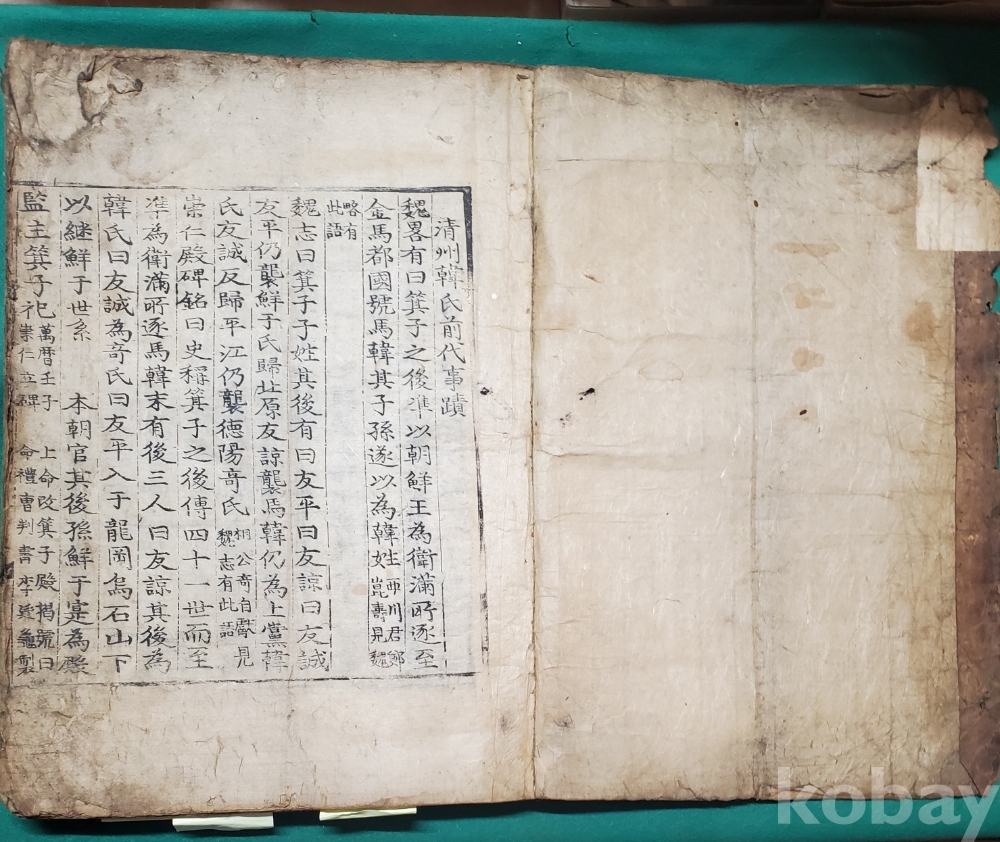 清州韓氏前代事蹟
魏畧有曰箕子之後準以朝鮮王為衛滿所逐至
金馬都國號馬韓其子孫遂以為韓姓西川君鄭
崑壽見魏
略有
此語
魏志曰箕子子姓其後有曰友平曰友諒曰友誠
友平仍襲鮮于氏歸北原友諒襲馬韓仍為上黨韓
氏友誠反歸平江仍襲德陽奇氏相公奇自獻見
魏志有此語
崇仁殿碑銘曰史稱箕子之後傳四十一世而至
準為衛滿所逐馬韓末有後三人曰友諒其後為
韓氏曰友誠為奇氏曰友平入于龍岡烏石山下
以継鮮于世系 本朝官其後孫鮮于寔為殿
監主箕子祀萬曆壬子 上命改箕子殿揭號曰
崇仁立碑 命禮曹判書李廷龜製
kobay